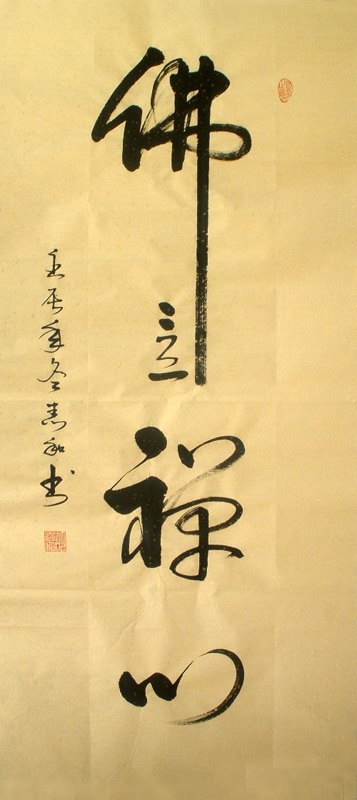 佛意禅心
壬辰年冬志和书